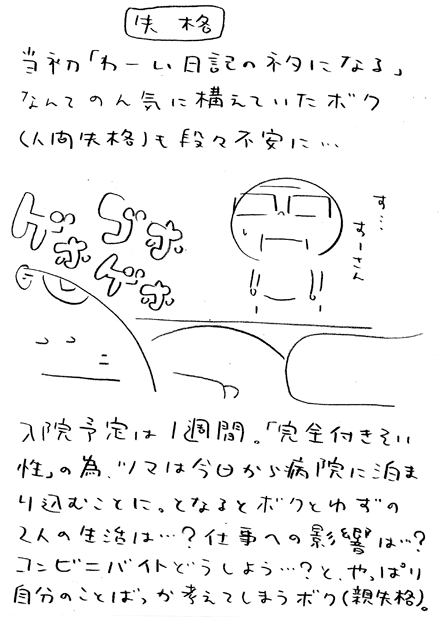 失格
当初「わーい日記のネタになる」
なんてのん気に構えていたボク
(人間失格)も段々不安に…
ゲホ ゴホ
ゲホ
す…
すーさん
入院予定は1週間。「完全付きそい
性」の為、ツマは今日から病院に泊ま
り込むことに。となるとボクとゆずの
2人の生活は…?仕事への影響は…?
コンビニバイトどうしよう…?と、やっぱり
自分のことばっか考えてしまうボク(親失格)。